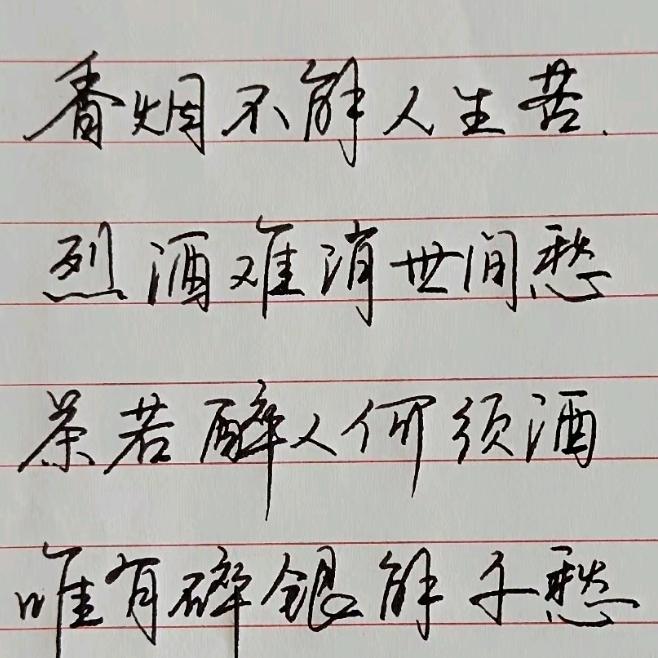 香烟不解人生苦.
烈酒难消世间愁
茶若醉人何须酒
唯有碎银解千愁